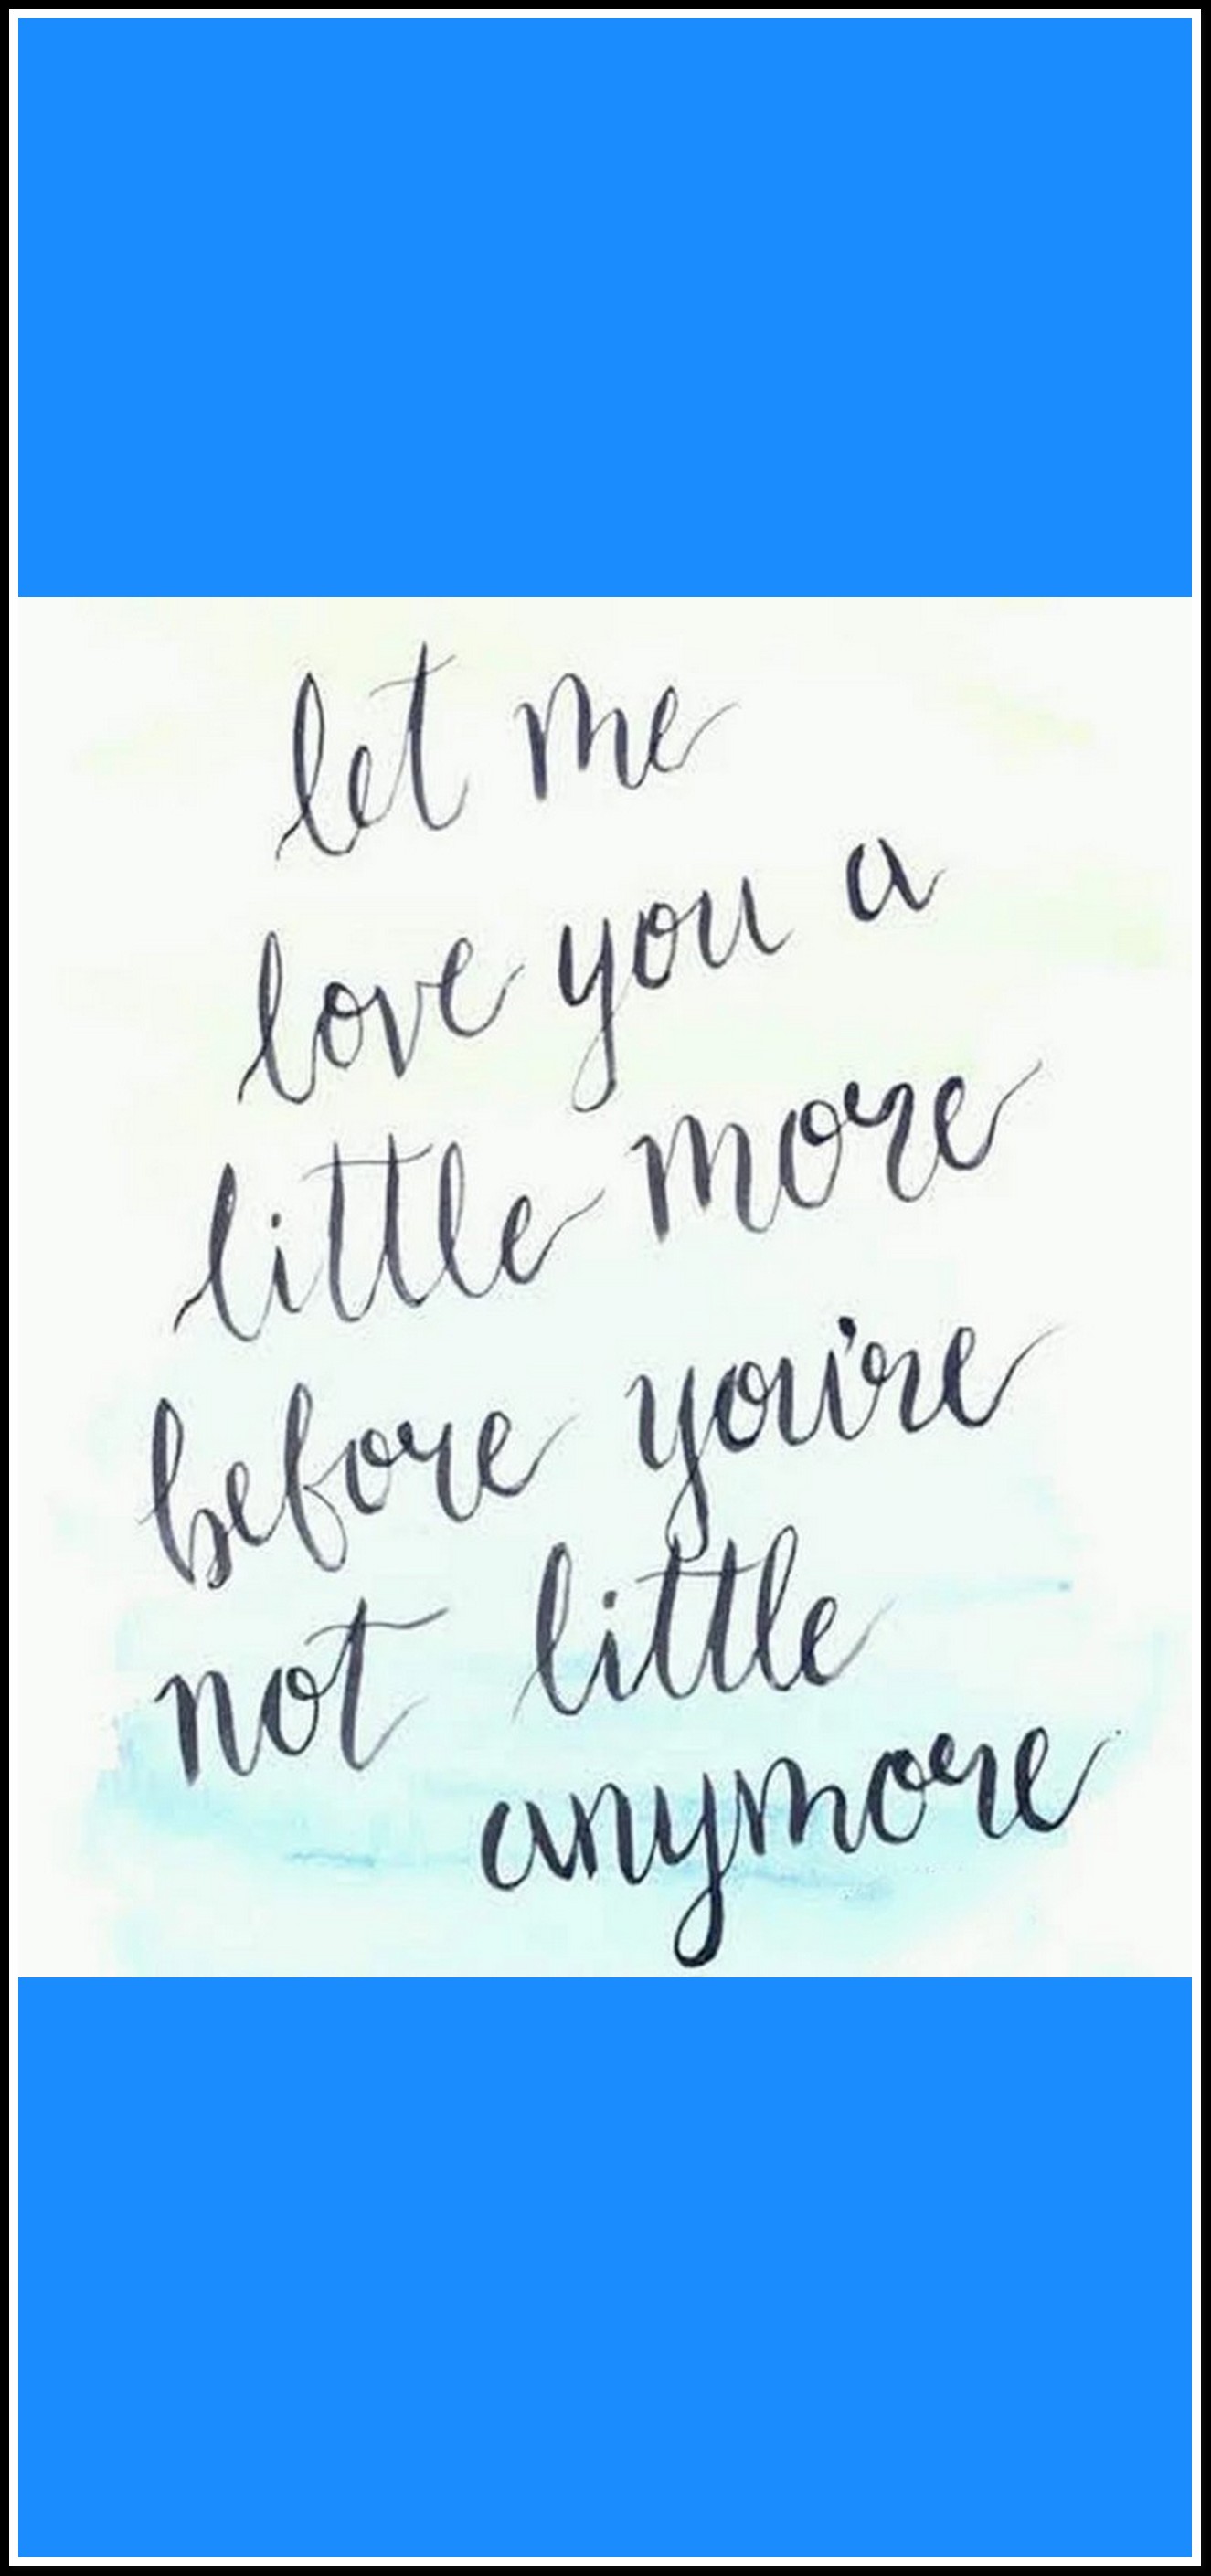 let me
love you a
little more
before you're
not little
anymore